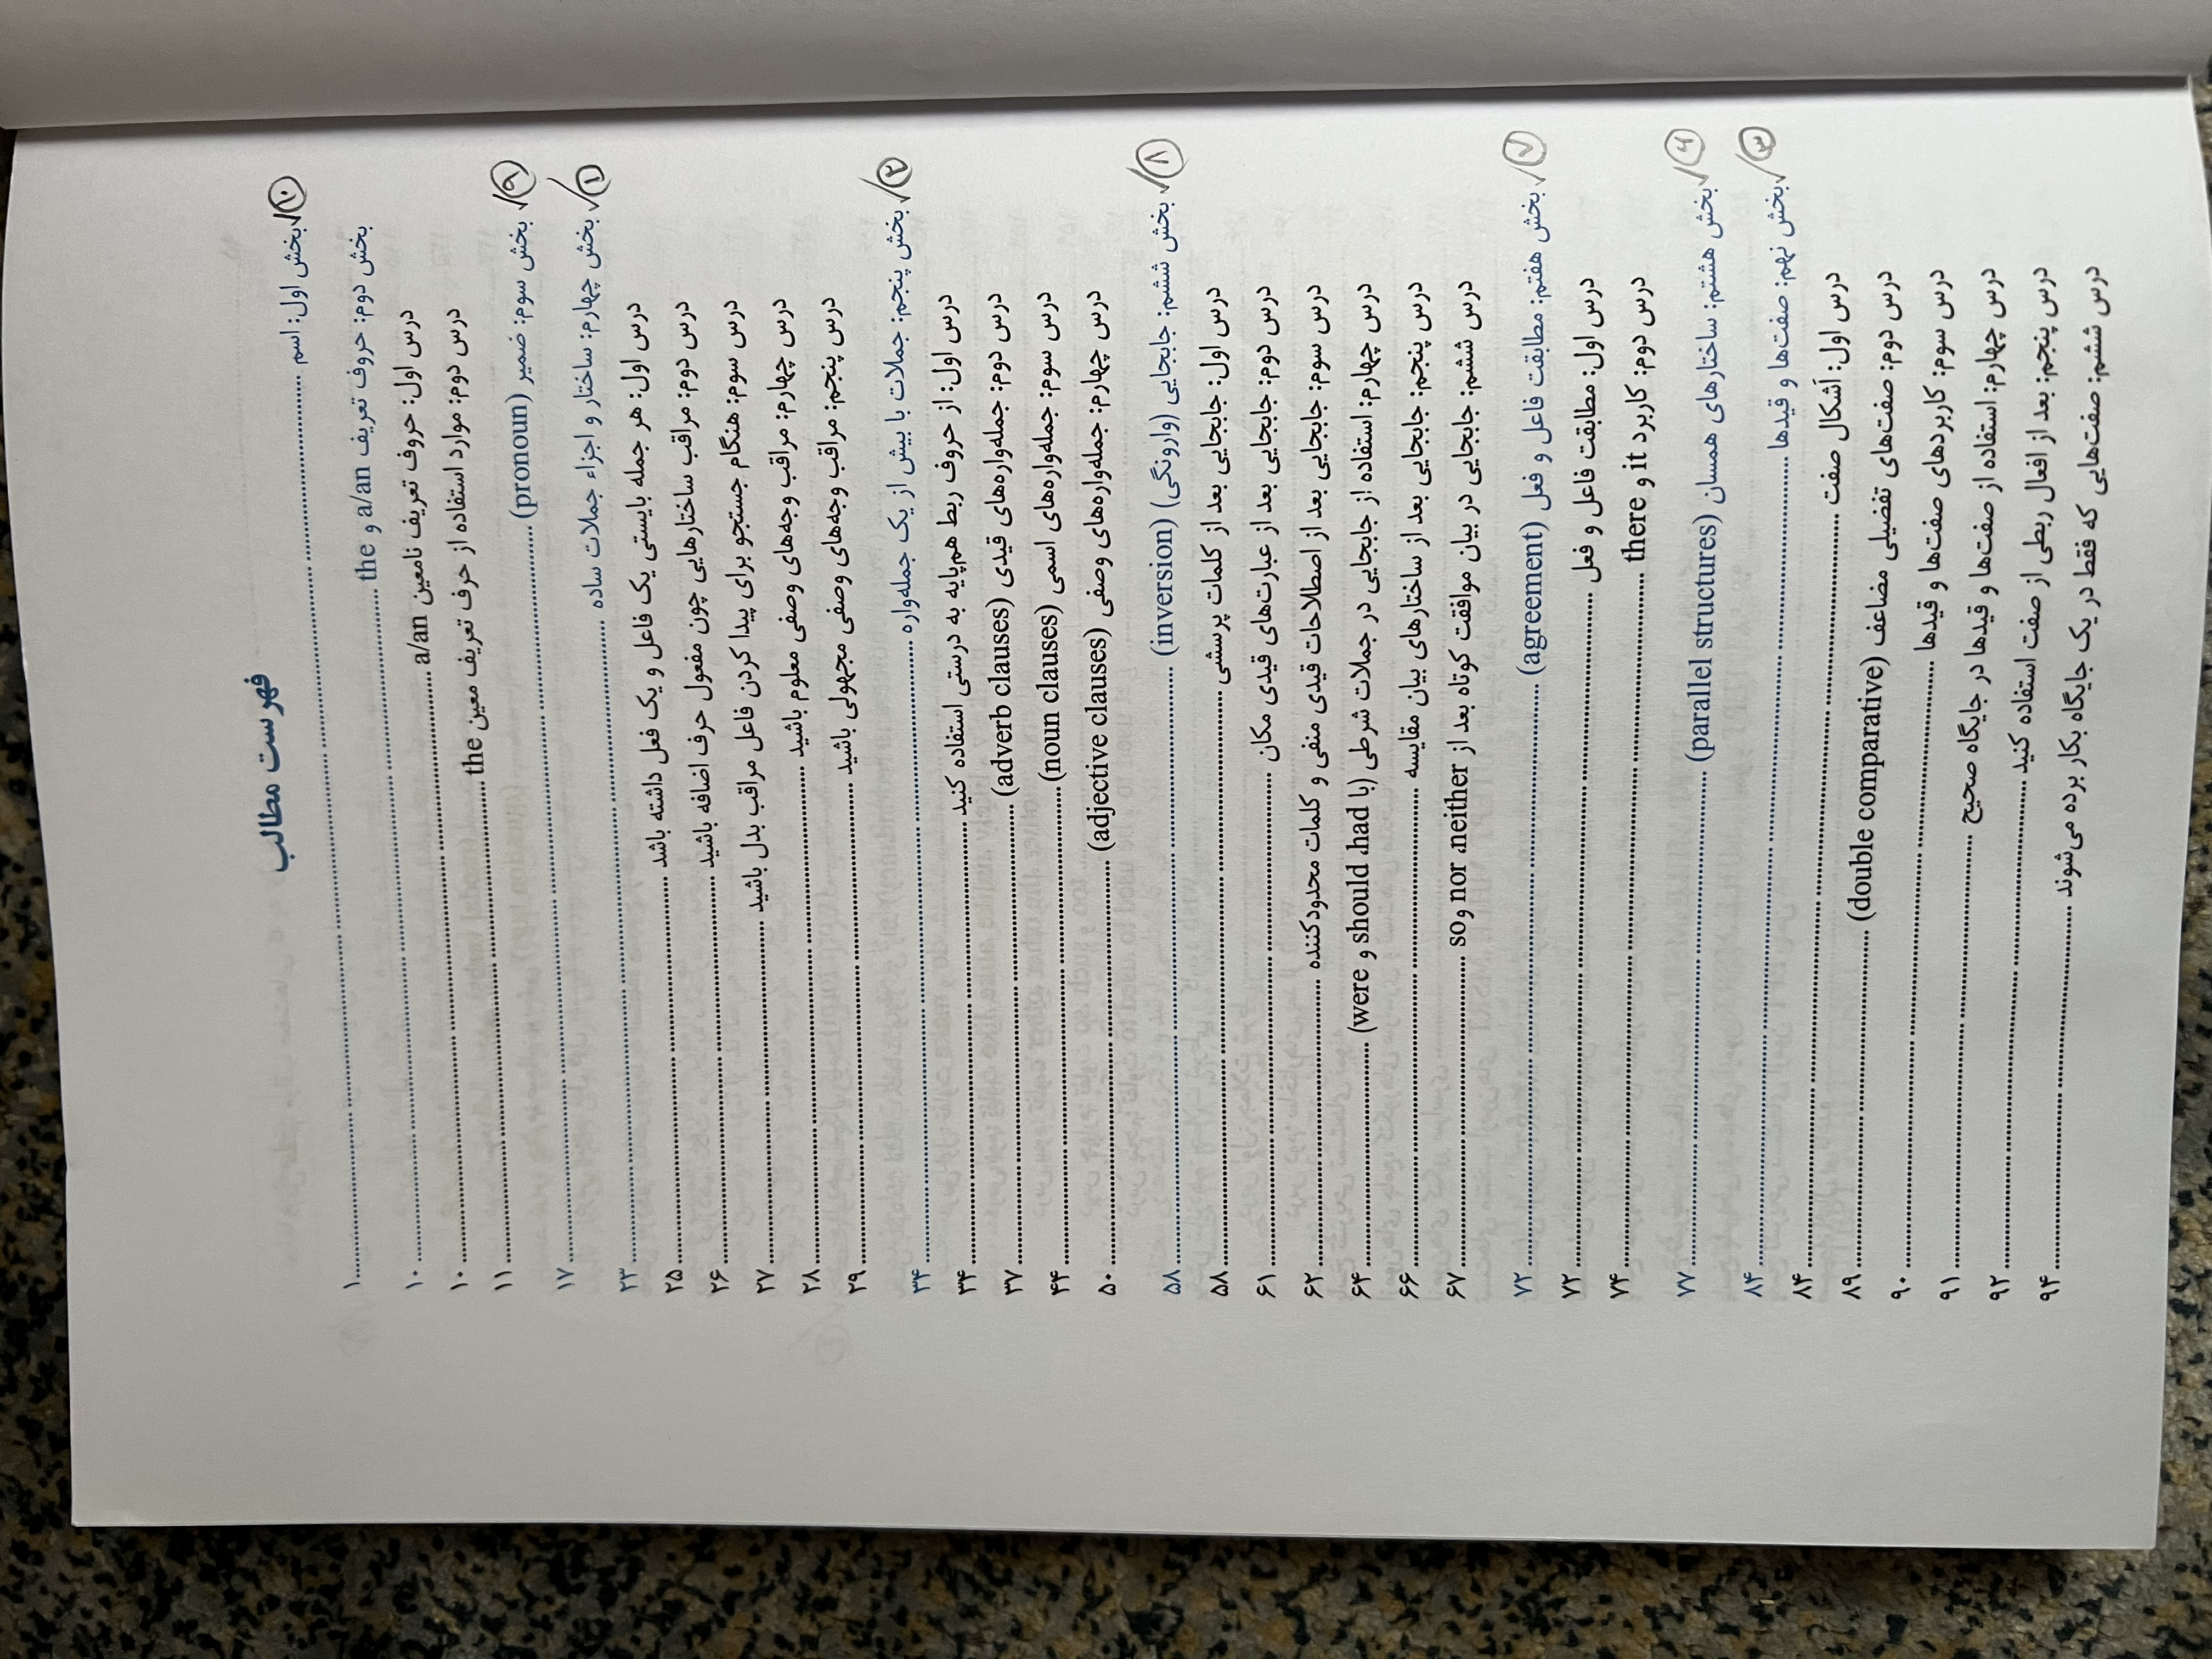 فهرست مطالب
بخش اول: اسم ........ ۱ ✓ ⑩
بخش دوم: حروف تعریف a/an و the ........ ۱۰
درس اول: حروف تعریف نامعین a/an ........ ۱۰
درس دوم: موارد استفاده از حرف تعریف معین the ........ ۱۱
بخش سوم: ضمیر (pronoun) ........ ۱۷ ✓ ۹
بخش چهارم: ساختار و اجزاء جملات ساده ........ ۲۳ ✓ ۱
درس اول: هر جمله بایستی یک فاعل و یک فعل داشته باشد ........ ۲۵
درس دوم: مراقب ساختارهایی چون مفعول حرف اضافه باشید ........ ۲۶
درس سوم: هنگام جستجو برای پیدا کردن فاعل مراقب بدل باشید ........ ۲۷
درس چهارم: مراقب وجه‌های وصفی معلوم باشید ........ ۲۸
درس پنجم: مراقب وجه‌های وصفی مجهولی باشید ........ ۲۹
بخش پنجم: جملات با بیش از یک جمله‌واره ........ ۳۴ ✓ ۲
درس اول: از حروف ربط هم‌پایه به درستی استفاده کنید ........ ۳۴
درس دوم: جمله‌واره‌های قیدی (adverb clauses) ........ ۳۷
درس سوم: جمله‌واره‌های اسمی (noun clauses) ........ ۴۴
درس چهارم: جمله‌واره‌های وصفی (adjective clauses) ........ ۵۰
بخش ششم: جابجایی (وارونگی) (inversion) ........ ۵۸ ✓ ۸
درس اول: جابجایی بعد از کلمات پرسشی ........ ۵۸
درس دوم: جابجایی بعد از عبارت‌های قیدی مکان ........ ۶۱
درس سوم: جابجایی بعد از اصطلاحات قیدی منفی و کلمات محدودکننده ........ ۶۲
درس چهارم: استفاده از جابجایی در جملات شرطی (با should ،had و were) ........ ۶۴
درس پنجم: جابجایی بعد از ساختارهای بیان مقایسه ........ ۶۶
درس ششم: جابجایی در بیان موافقت کوتاه بعد از nor ،neither و so ........ ۶۷
بخش هفتم: مطابقت فاعل و فعل (agreement) ........ ۷۲ ✓ ۷
درس اول: مطابقت فاعل و فعل ........ ۷۲
درس دوم: کاربرد it و there ........ ۷۴
بخش هشتم: ساختارهای همسان (parallel structures) ........ ۷۷ ✓ ۴
بخش نهم: صفت‌ها و قیدها ........ ۸۴ ✓ ۳
درس اول: اَشکال صفت ........ ۸۴
درس دوم: صفت‌های تفضیلی مضاعف (double comparative) ........ ۸۹
درس سوم: کاربردهای صفت‌ها و قیدها ........ ۹۰
درس چهارم: استفاده از صفت‌ها و قیدها در جایگاه صحیح ........ ۹۱
درس پنجم: بعد از افعال ربطی از صفت استفاده کنید ........ ۹۲
درس ششم: صفت‌هایی که فقط در یک جایگاه بکار برده می‌شوند ........ ۹۴